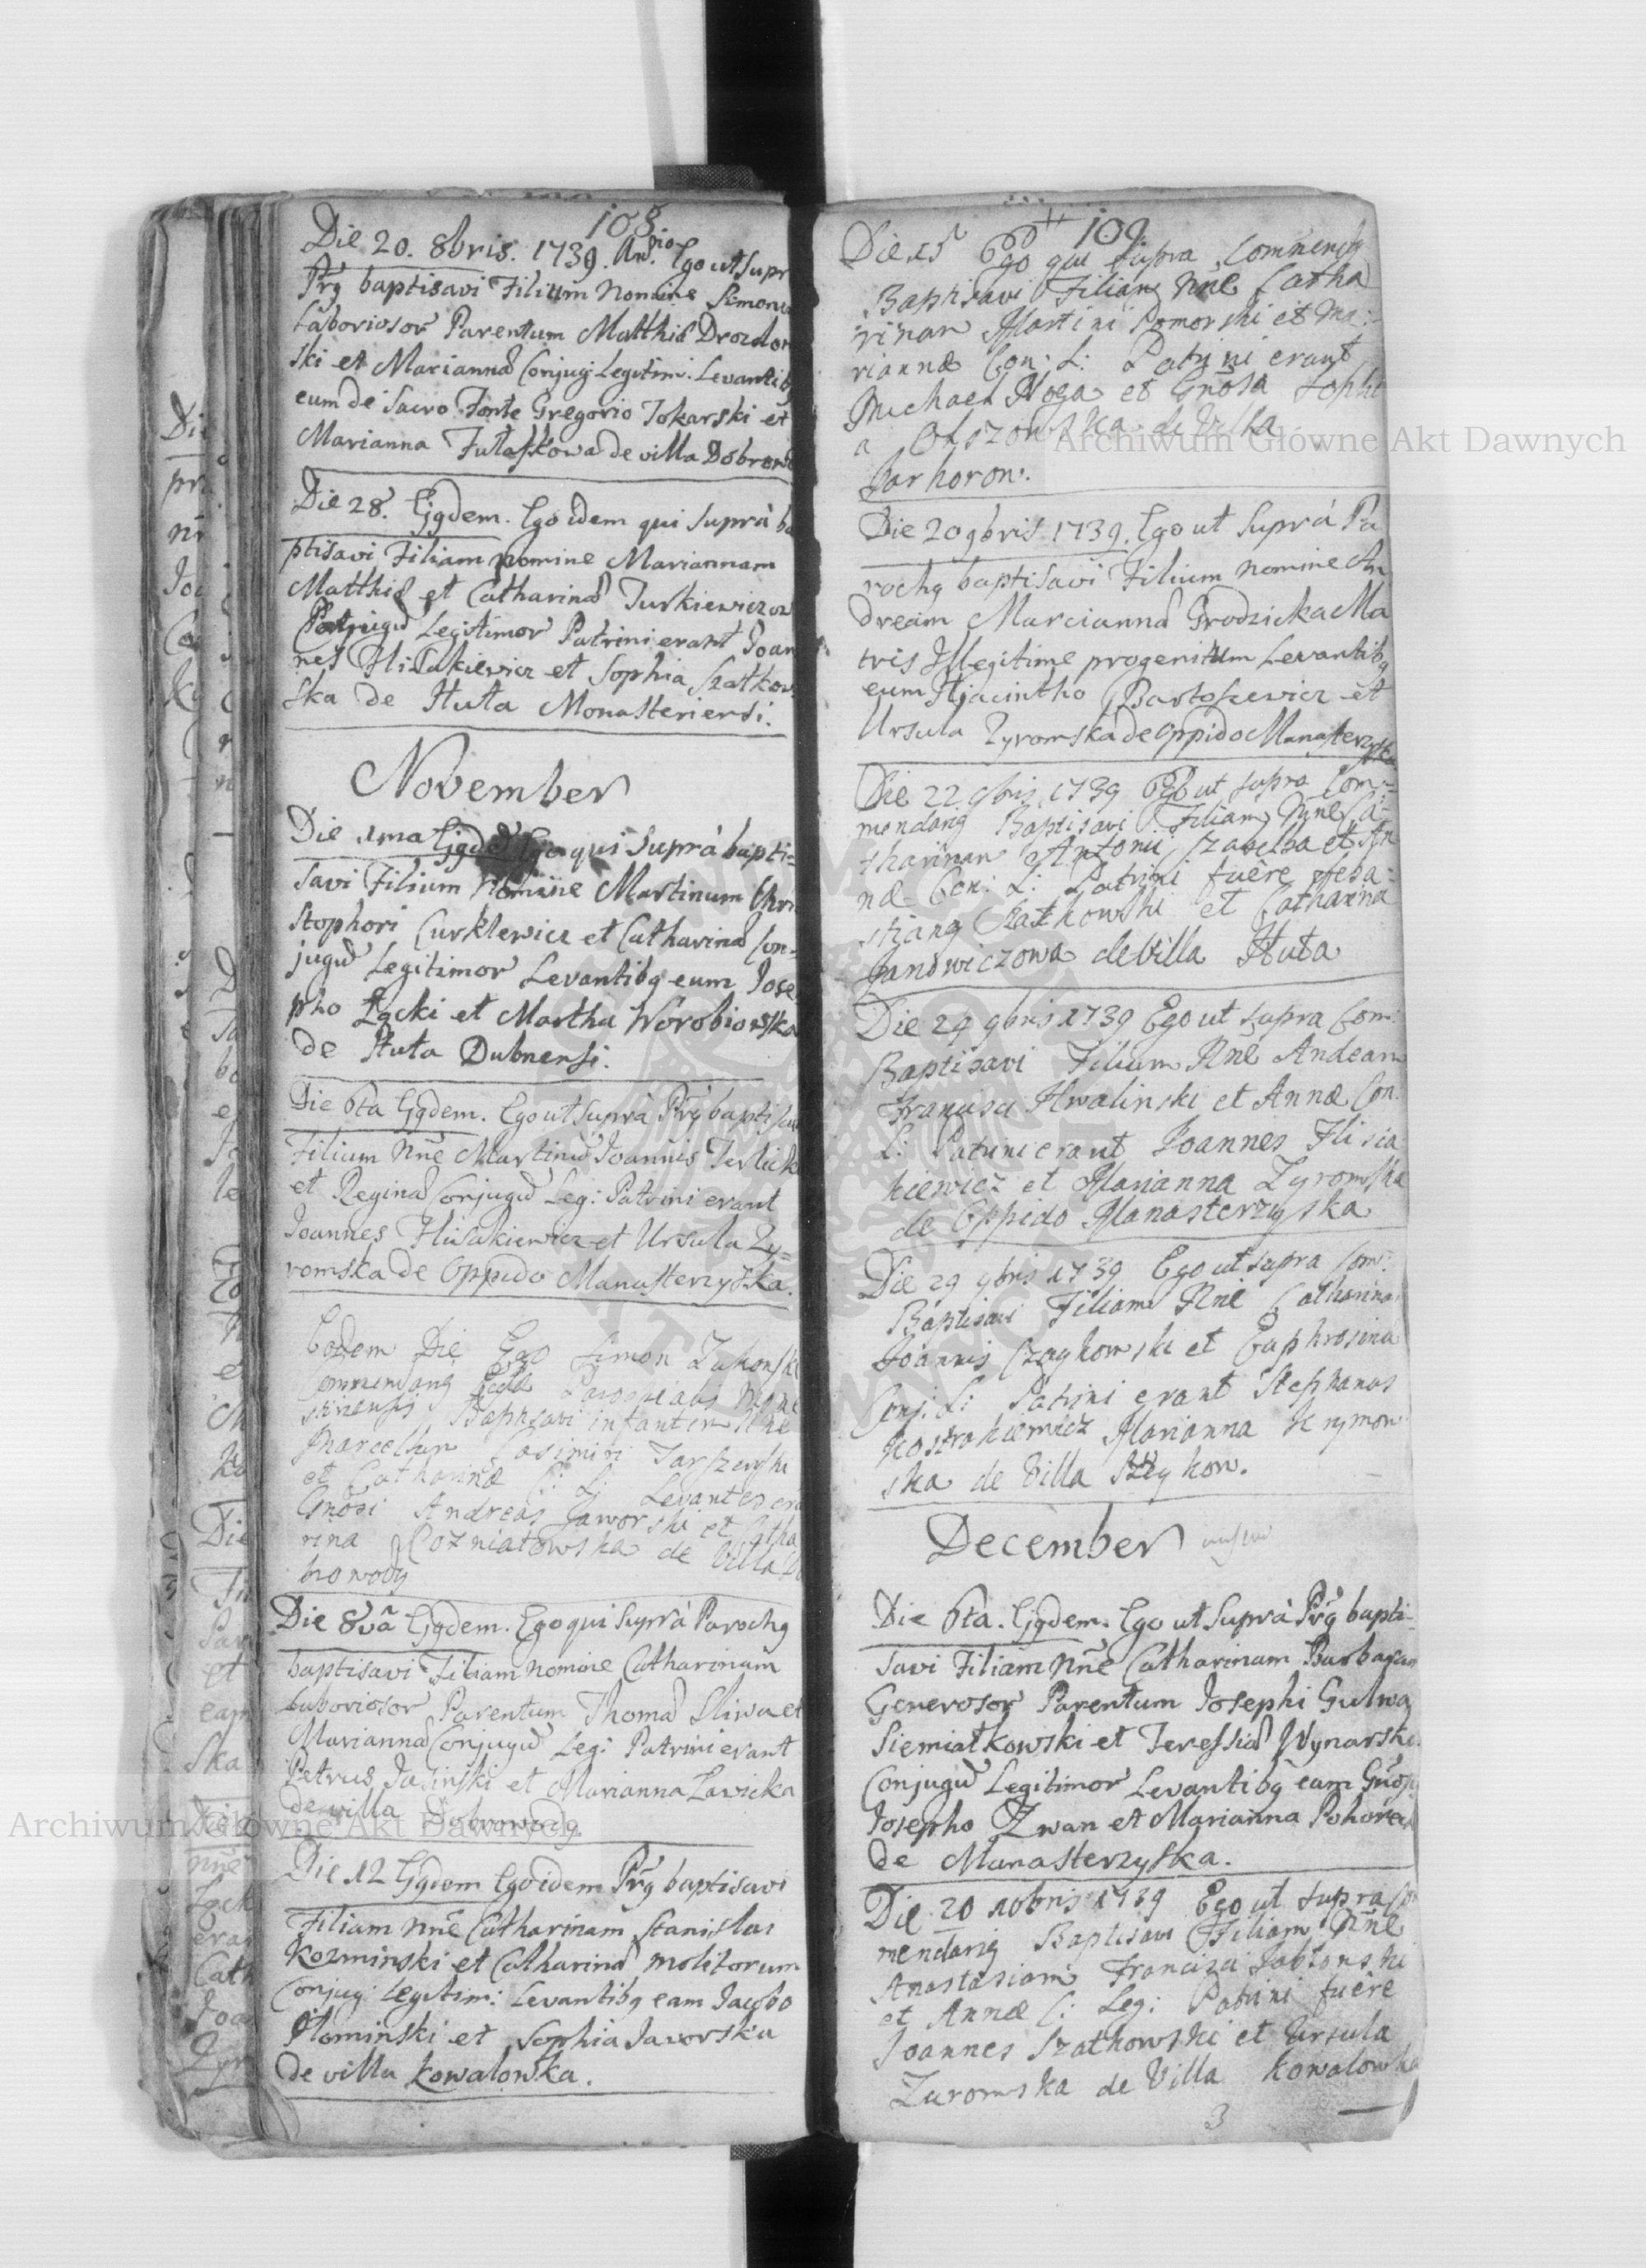 108
Die 20. 8bris. 1739. An̄io Ego ut Supr
Prg baptisavi Filium Nomine Simonu
Laboriosor Parentum Matthiæ Drozdow
ski et Mariannæ Conjug: Legitim: Levantibg
eum de Sacro Fonte Gregorio Tokarski et
Marianna Fułaskowa de villa Dobrowo
Die 28. Ejgdem. Ego idem qui Suprà ba
ptisavi Filiam nomine Mariannam
Matthiæ et Catharinæ Turkiewiczow
Conjugū Legitimor Patrini erant Joan
nes Flisakiewicz et Sophia Szatkow
ska de Huta Monasteriensi.
November
Die 1ma Ejgdē Ego qui Suprà bapti=
savi Filium Nomine Martinum Chri
stophori Curklewicz et Catharinæ Con=
jugū Legitimor Levantibg eum Jose
pho Łącki et Martha Worobiowska
de Huta Dubnensi.
Die 6ta Ejgdem. Ego ut Suprà Prg baptisav
Filium Nn̄e Martinū Joannis Terlick
et Reginæ Conjugū Leg: Patrini erant
Joannes Flisakiewicz et Ursula Zy=
romska de Oppido Manasterzyska.
Eodem Die Ego Simon Zukonski
Commendang Parochialis
Baptisavi infantem Nn̄e
Marcellum Casimiri Jarszewski
et Catharinæ C: L: Levantes era
Gnōsi Andreas Jaworski et Catha
rina Pozniatowska de Villa Do
browody
Die 8vâ Ejgdem. Ego qui Suprà Parochg
baptisavi Filiam nomine Catharinam
Laboriosor Parentum Thomæ Sliwa et
Mariannæ Conjugū Leg: Patrini erant
Petrus Jasinski et Marianna Lavicka
de villa Dobrowody.
Die 12 Ejgdem Ego idem Prg baptisavi
Filiam Nn̄e Catharinam Stanislai
Kozminski et Catharinæ molitorum
Conjug: Legitim: Levantibg eam Jacobo
Płominski et Sophia Jaworska
de villa Kowalowka.
109
Die 15 Ego qui supra Commendg
Baptisavi Filiam Nn̄e Catha
rinam Martini Pomorski et Ma:
riannæ Con: L: Patrini erant
Michael Noga et Gnōsa Sophi
a Olszowska de Villa
Barhoron.
Die 20 9bris 1739. Ego ut Suprà Pa
rochg baptisavi Filium nomine An
dream Mariannæ Grodzicka Ma
tris Illegitime progenitum Levantibg
eum Hjacintho Bartosiewicz et
Ursula Zyromska de Oppido Manasterzyska
Die 22 9bris 1739 Ego ut supra Com=
mendang Baptisavi Filiam Nn̄e Ca=
tharinam Antonii Szawełka et An
næ Con: L: Patrini fuêre Seba=
stiang Szatkowski et Catharina
Janowiczowa de Villa Huta
Die 24 9bris 1739 Ego ut supra Com:
Baptisavi Filium Nn̄e Andeam
Francisci Hwalinski et Annæ Con:
L: Patrini erant Joannes Flisia
kiewicz et Marianna Zyromska
de Oppido Manasterzyska
Die 29 9bris 1739 Ego ut supra Com:
Baptisavi Filiam Nn̄e Catharinam
Joannis Czaykowski et Euphrosina
Conj: L: Patrini erant Stephanus
Kostrakiewicz Marianna Krymow
ska de Villa
December
Die 6ta. Ejgdem. Ego ut Suprà Prg bapti=
savi Filiam Nn̄e Catharinam Barbaram
Generosor Parentum Josephi Gulwa
Siemiatkowski et Teressiæ Wynarski
Conjugū Legitimor Levantibg eam Gnōsg
Josepho Zwan et Marianna Pohorec
de Manasterzyska.
Die 20 10bris 1739 Ego ut supra Co
mendarig Baptisavi Filiam Nn̄e
Anastasiam Francisci Jabłonski
et Annæ C: Leg: Patrini fuêre
Joannes Szatkowski et Ursula
Zuromska de Villa Kowalowka
3
Archiwum Główne Akt Dawnych
Archiwum Główne Akt Dawnych